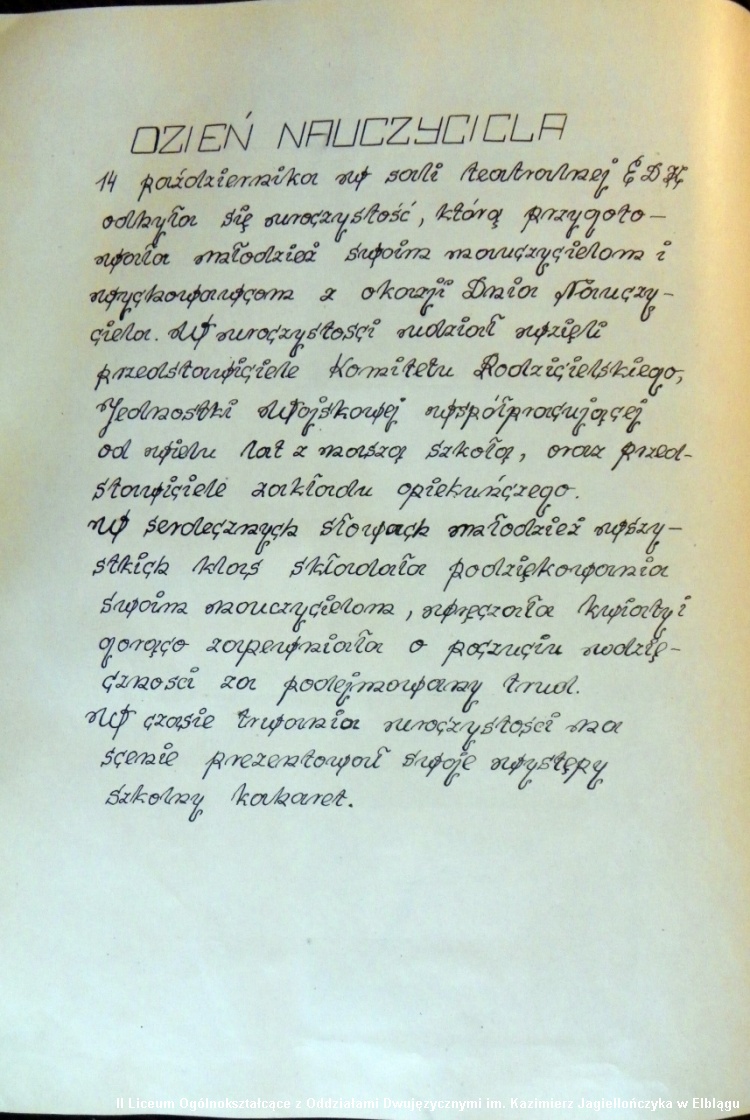 DZIEŃ NAUCZYCIELA
14 października w sali teatralnej EDK
odbyła się uroczystość, którą przygoto-
wała młodzież swoim nauczycielom i
wychowawcom z okazji Dnia Nauczy-
ciela. W uroczystości udział wzięli
przedstawiciele Komitetu Rodzicielskiego,
Jednostki Wojskowej współpracującej
od wielu lat z naszą szkołą, oraz przed-
stawiciele zakładu opiekuńczego.
W serdecznych słowach młodzież wszy-
stkich klas składała podziękowania
swoim nauczycielom, wręczała kwiaty i
gorąco zapewniała o poczuciu wdzię-
czności za podejmowany trud.
W czasie trwania uroczystości na
scenie prezentował swoje występy
szkolny kabaret.
II Liceum Ogólnokształcące z Oddziałami Dwujęzycznymi im. Kazimierz Jagiellończyka w Elblągu